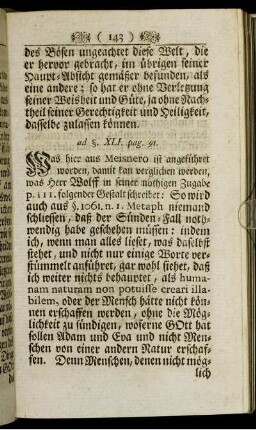 ( 143 )
des Bösen ungeachtet diese Welt, die
er hervor gebracht, im übrigen seiner
Haupt-Absicht gemäßer befunden, als
eine andere: so hat er ohne Verletzung
seiner Weisheit und Güte, ja ohne Nach-
theil seiner Gerechtigkeit und Heiligkeit,
dasselbe zulassen können.
ad §. XLI. pag. 91.
Was hier aus Meisnero ist angeführet
worden, damit kan verglichen werden,
was Herr Wolff in seiner nöthigen Zugabe
p. 111. folgender Gestalt schreibet: So wird
auch aus §. 1061. n. 1. Metaph. niemand
schliessen, daß der Sünden-Fall noth-
wendig habe geschehen müssen: indem
ich, wenn man alles lieset, was daselbst
stehet, und nicht nur einige Worte ver-
stümmelt anführet, gar wohl siehet, daß
ich weiter nichts behauptet, als huma-
nam naturam non potuisse creari illa-
bilem, oder der Mensch hätte nicht kön-
nen erschaffen werden, ohne die Mög-
lichkeit zu sündigen, woferne GOtt hat
sollen Adam und Eva und nicht Men-
schen von einer andern Natur erschaf-
fen. Denn Menschen, denen nicht mög-
lich